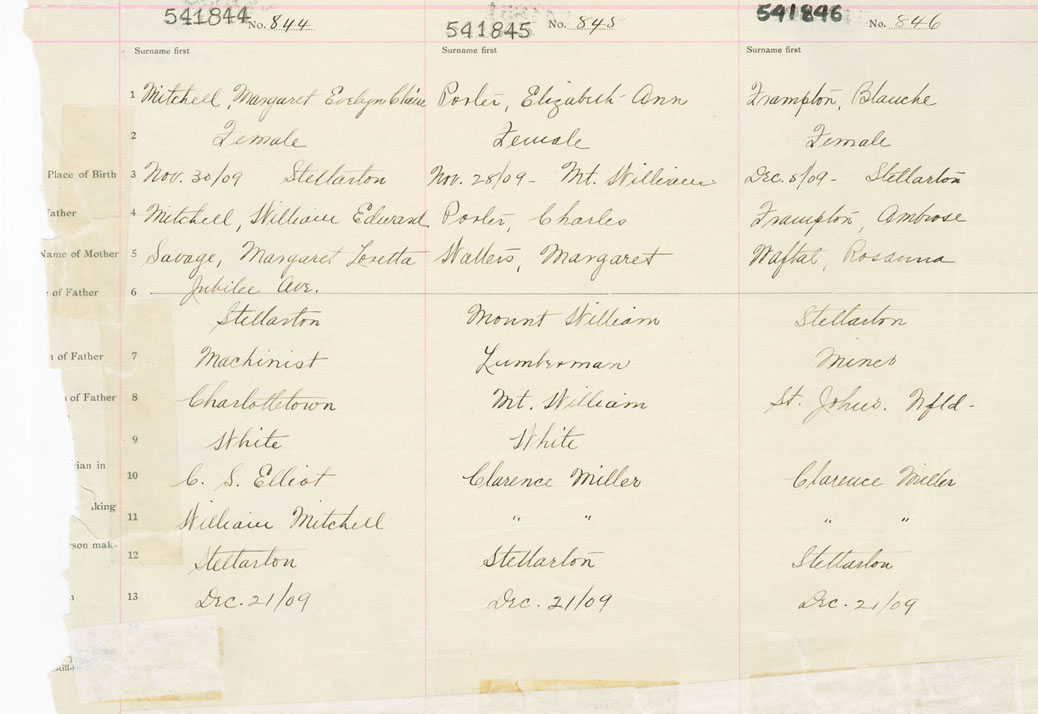 541844 No. 844 541845 No. 845 541846 No. 846
Surname first Surname first Surname first
1 Mitchell, Margaret Evelyn Claire Porter, Elizabeth Ann Frampton, Blanche
2 Female Female Female
Place of Birth 3 Nov. 30/09 Stellarton Nov. 28/09 - Mt. William Dec. 5/09 - Stellarton
Father 4 Mitchell, William Edward Porter, Charles Frampton, Ambrose
Name of Mother 5 Savage, Margaret Loretta Walters, Margaret Rosanna
Jubilee Ave.
of Father 6
Stellarton Mount William Stellarton
of Father 7 Machinist Lumberman Miner
of Father 8 Charlottetown Mt. William St. Johns. Nfld-
9 White White
ian in
10 C. S. Elliot Clarence Miller Clarence Miller
king
11 William Mitchell " " " "
rson mak-
12 Stellarton Stellarton Stellarton
13 Dec. 21/09 Dec. 21/09 Dec. 21/09
still-